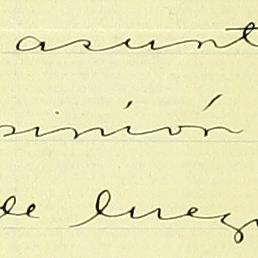 asunt
pinión
de luego